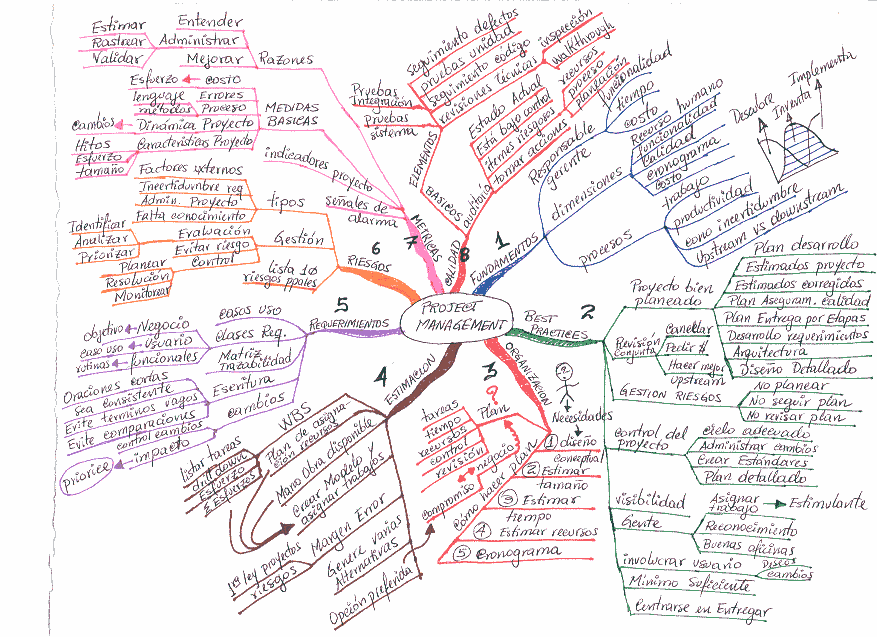 PROJECT
MANAGEMENT
1
FUNDAMENTOS
Responsable
gerente
funcionalidad
tiempo
costo
dimensiones
Recurso humano
funcionalidad
Calidad
cronograma
costo
procesos
trabajo
productividad
cono incertidumbre
Upstream vs downstream
Descubre
Inventa
Implementa
2
BEST
PRACTICES
Proyecto bien
planeado
Plan desarrollo
Estimados proyecto
Estimados corregidos
Plan Aseguram. calidad
Plan Entrega por Etapas
Desarrollo requerimientos
Arquitectura
Diseño Detallado
Revisión
Conjunta
Cancelar
Pedir $
Hacer mejor
upstream
GESTION RIESGOS
No planear
No seguir plan
No revisar plan
Control del
Proyecto
Ciclo adecuado
Administrar cambios
Crear Estándares
Plan detallado
visibilidad
Gente
Asignar
trabajo
Estimulante
Reconocimiento
Buenas oficinas
involucrar usuario
Diseños
cambios
Mínimo Suficiente
Centrarse en Entregar
3
ORGANIZACION
?
Plan
tareas
tiempo
recursos
control
revisión
negocio
compromiso
Como hacer plan
Necesidades
1 diseño
conceptual
2 Estimar
tamaño
3 Estimar
tiempo
4 Estimar recursos
5 Cronograma
4
ESTIMACION
WBS
listar tareas
Esfuerzo
Σ Esfuerzos
Plan de asigna-
ción recursos
Mano obra disponible
Crear Modelo y
asignar trabajos
Margen Error
1ª ley proyectos
riesgos
Genere varias
Alternativas
Opción preferida
5
REQUERIMIENTOS
casos uso
Clases Req.
Negocio
objetivo
usuario
caso uso
funcionales
rutinas
Matriz
trazabilidad
Escritura
Oraciones cortas
Sea consistente
Evite términos vagos
Evite comparaciones
cambios
control cambios
impacto
priorice
6
RIESGOS
tipos
Factores externos
Incertidumbre req
Admin. Proyecto
Falta conocimiento
Gestión
Evaluación
Identificar
Analizar
Priorizar
Evitar riesgo
Control
Planear
Resolución
Monitorear
lista 10
riesgos ppales
7
METRICAS
Razones
Entender
Administrar
Mejorar
Estimar
Rastrear
Validar
MEDIDAS
BASICAS
costo
Esfuerzo
Errores
Proceso
lenguaje
métodos
Dinámica Proyecto
Cambios
Características Proyecto
Hitos
Esfuerzo
tamaño
indicadores proyecto
señales de
alarma
8
CALIDAD
ELEMENTOS
BASICOS
seguimiento defectos
pruebas unidad
seguimiento código
revisiones técnicas
inspección
walkthrough
Pruebas
Integración
Pruebas
sistema
auditoría
Estado Actual
Está bajo control
recursos
proceso
planeación
ítemes riesgosos
tomar acciones